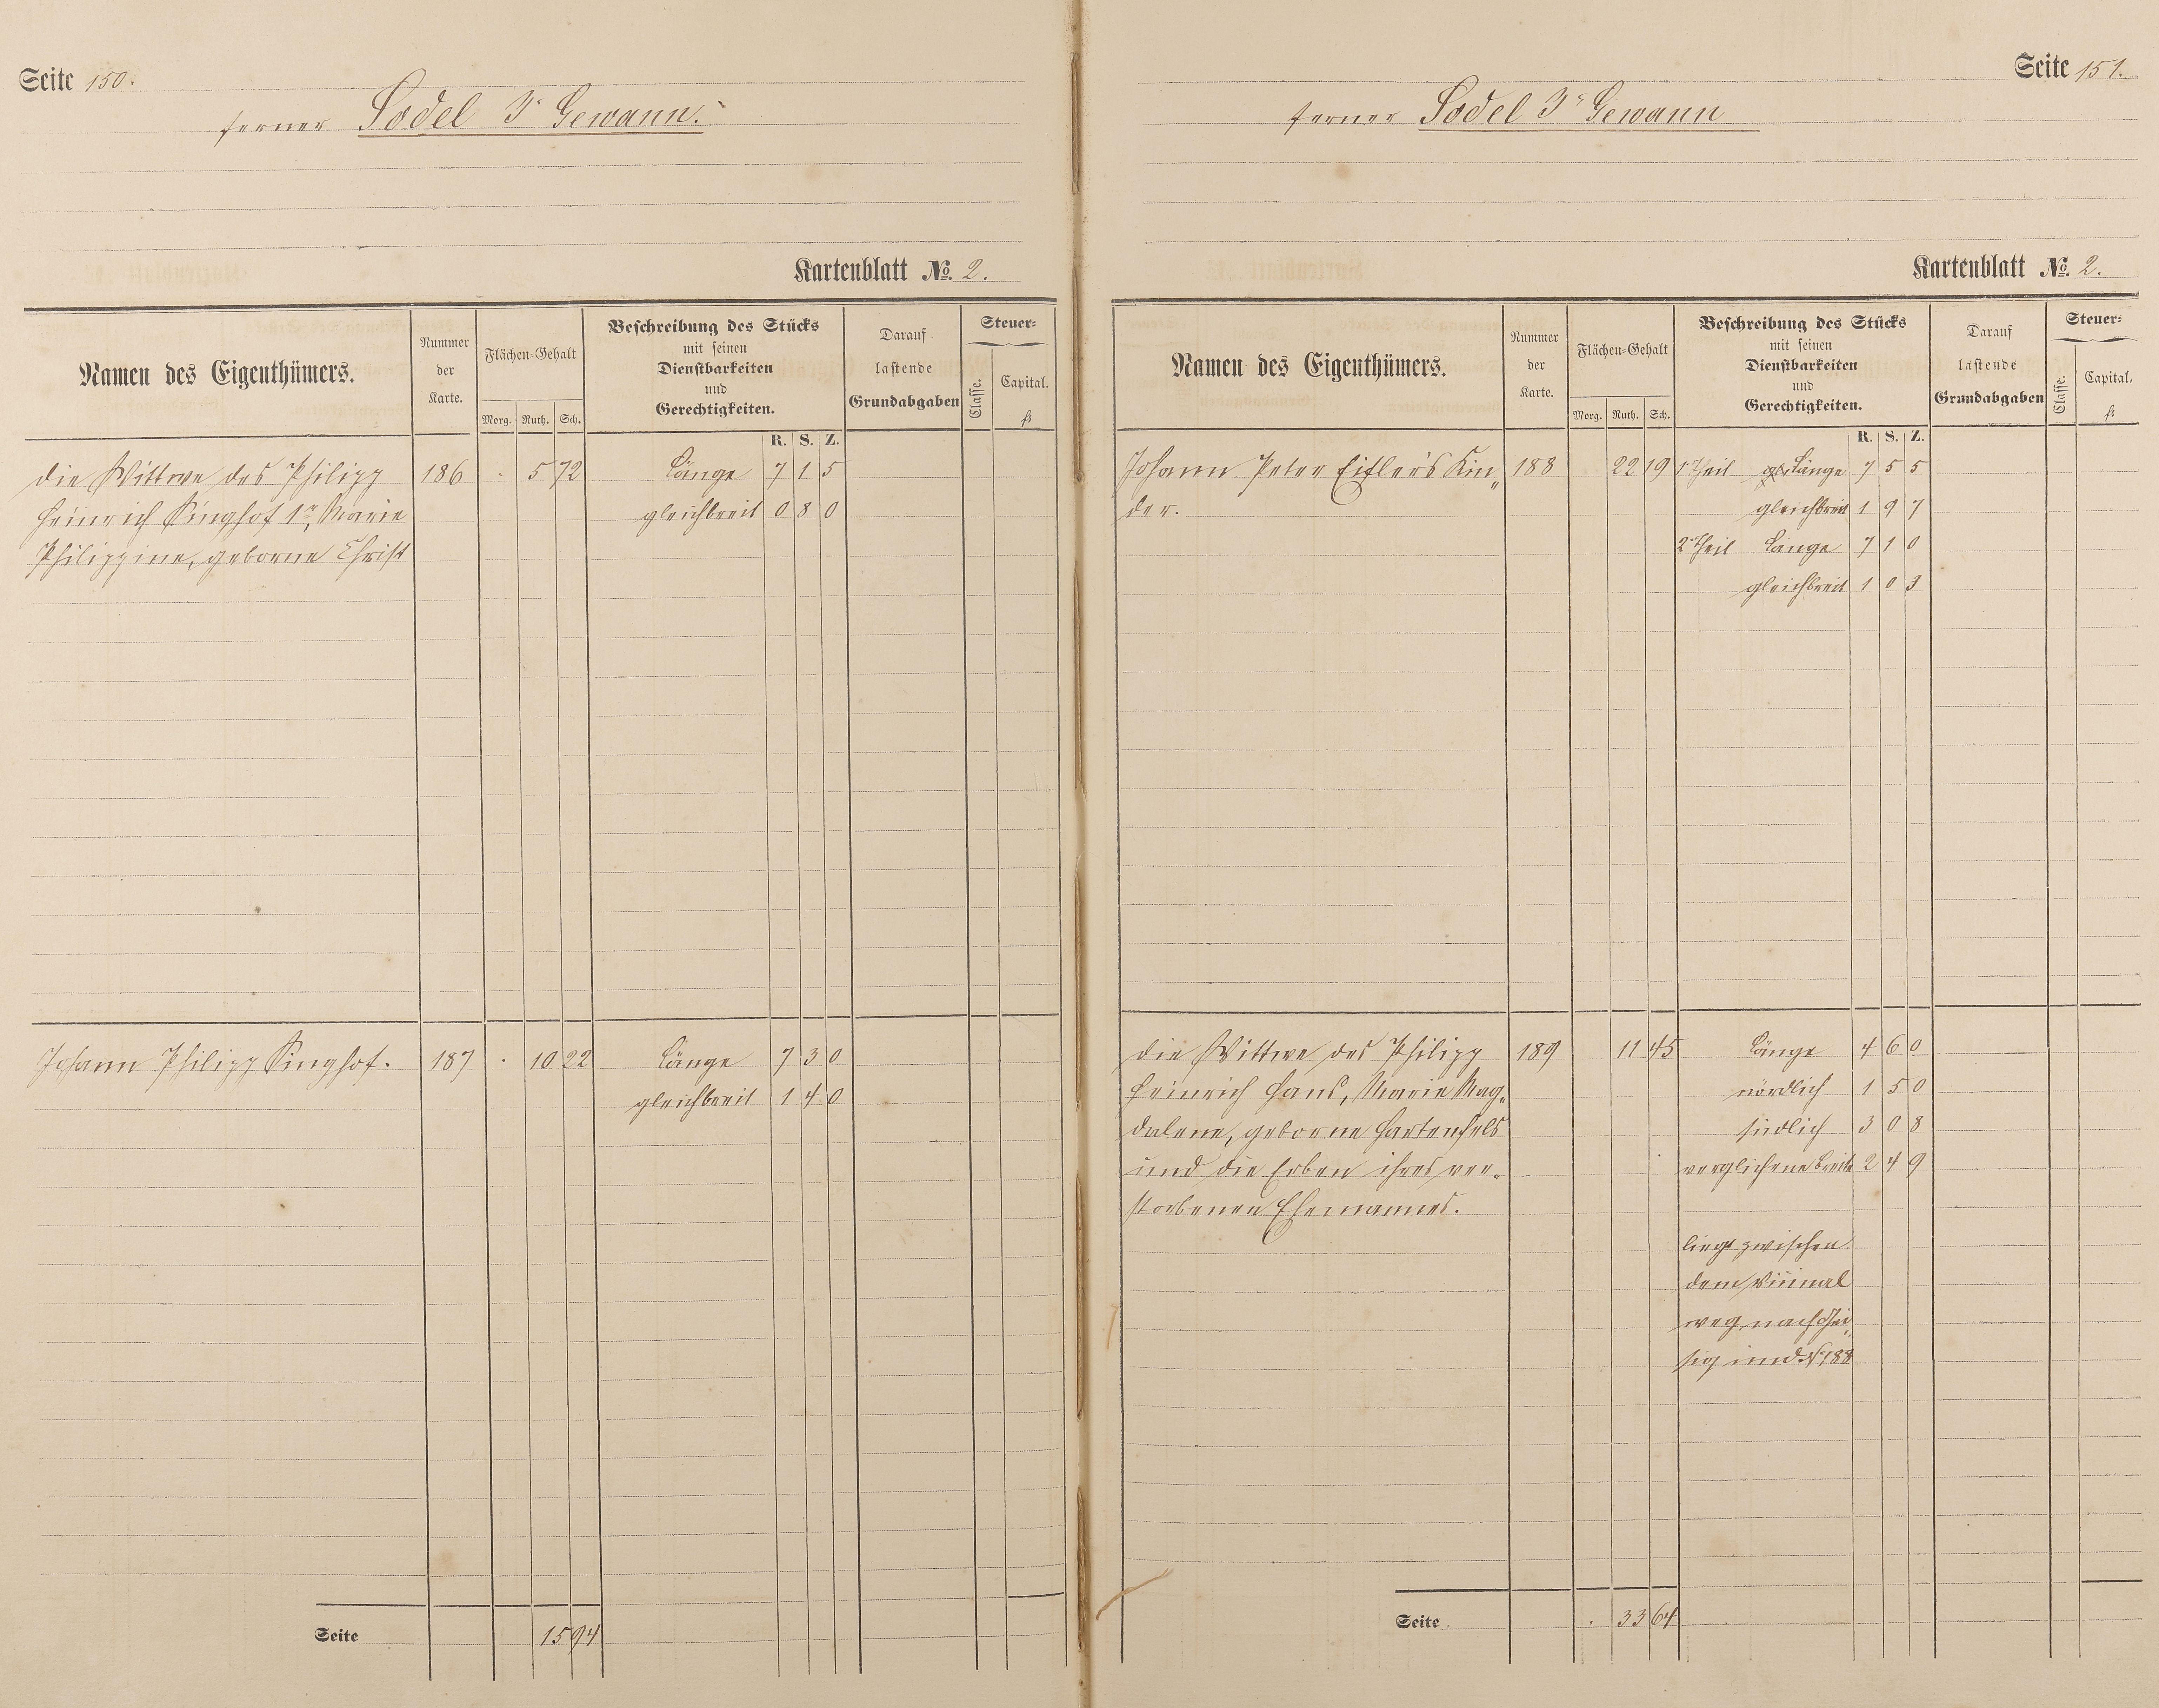 Seite 150.
ferner Sodel 3r Gewann.
Kartenblatt No. 2.
Namen des Eigenthümers.
Nummer der Karte.
Flächen-Gehalt
Morg. Ruth. Sch.
Beschreibung des Stücks
mit seinen
Dienstbarkeiten
und
Gerechtigkeiten.
Darauf
lastende
Grundabgaben
Steuer-
Classe. Capital.
fl
R. S. Z.
die Wittwe des Philipp 186 . 5 72 Länge 7 1 5
Heinrich Singhof 1r, Marie gleichbreit 0 8 0
Philippine, geborne Christ
Johann Philipp Singhof. 187 . 10 22 Länge 7 3 0
gleichbreit 1 4 0
Seite 15 94
Seite 151.
ferner Sodel 3r Gewann
Kartenblatt No. 2.
Namen des Eigenthümers.
Nummer der Karte.
Flächen-Gehalt
Morg. Ruth. Sch.
Beschreibung des Stücks
mit seinen
Dienstbarkeiten
und
Gerechtigkeiten.
Darauf
lastende
Grundabgaben
Steuer-
Classe. Capital.
fl
R. S. Z.
Johann Peter Eifler's Kin„ 188 22 19 1r Theil Länge 7 5 5
der. gleichbreit 1 9 7
2r Theil Länge 7 1 0
gleichbreit 1 0 3
die Wittwe des Philipp 189 11 45 Länge 4 6 0
Heinrich Hans, Marie Mag„ nördlich 1 5 0
dalene, geborne Hartenfels südlich 3 0 8
und die Erben ihres ver„ verglichene Breite 2 4 9
storbenen Ehemannes.
liegt zwischen
dem
weg nach
sig und No 188
Seite . 33 64